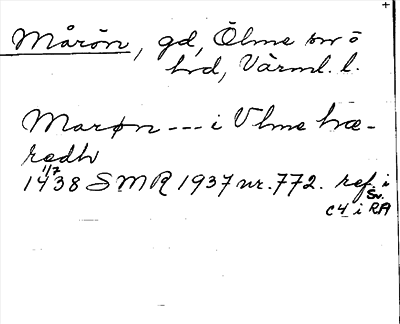 Mårön, gd, Ölme sn o
hrd, Värml. l.
Marøn --- i Vlme hæ-
redh
1/7
1438 SMR 1937 nr. 772. ref. i
Sv.
C4 i RA